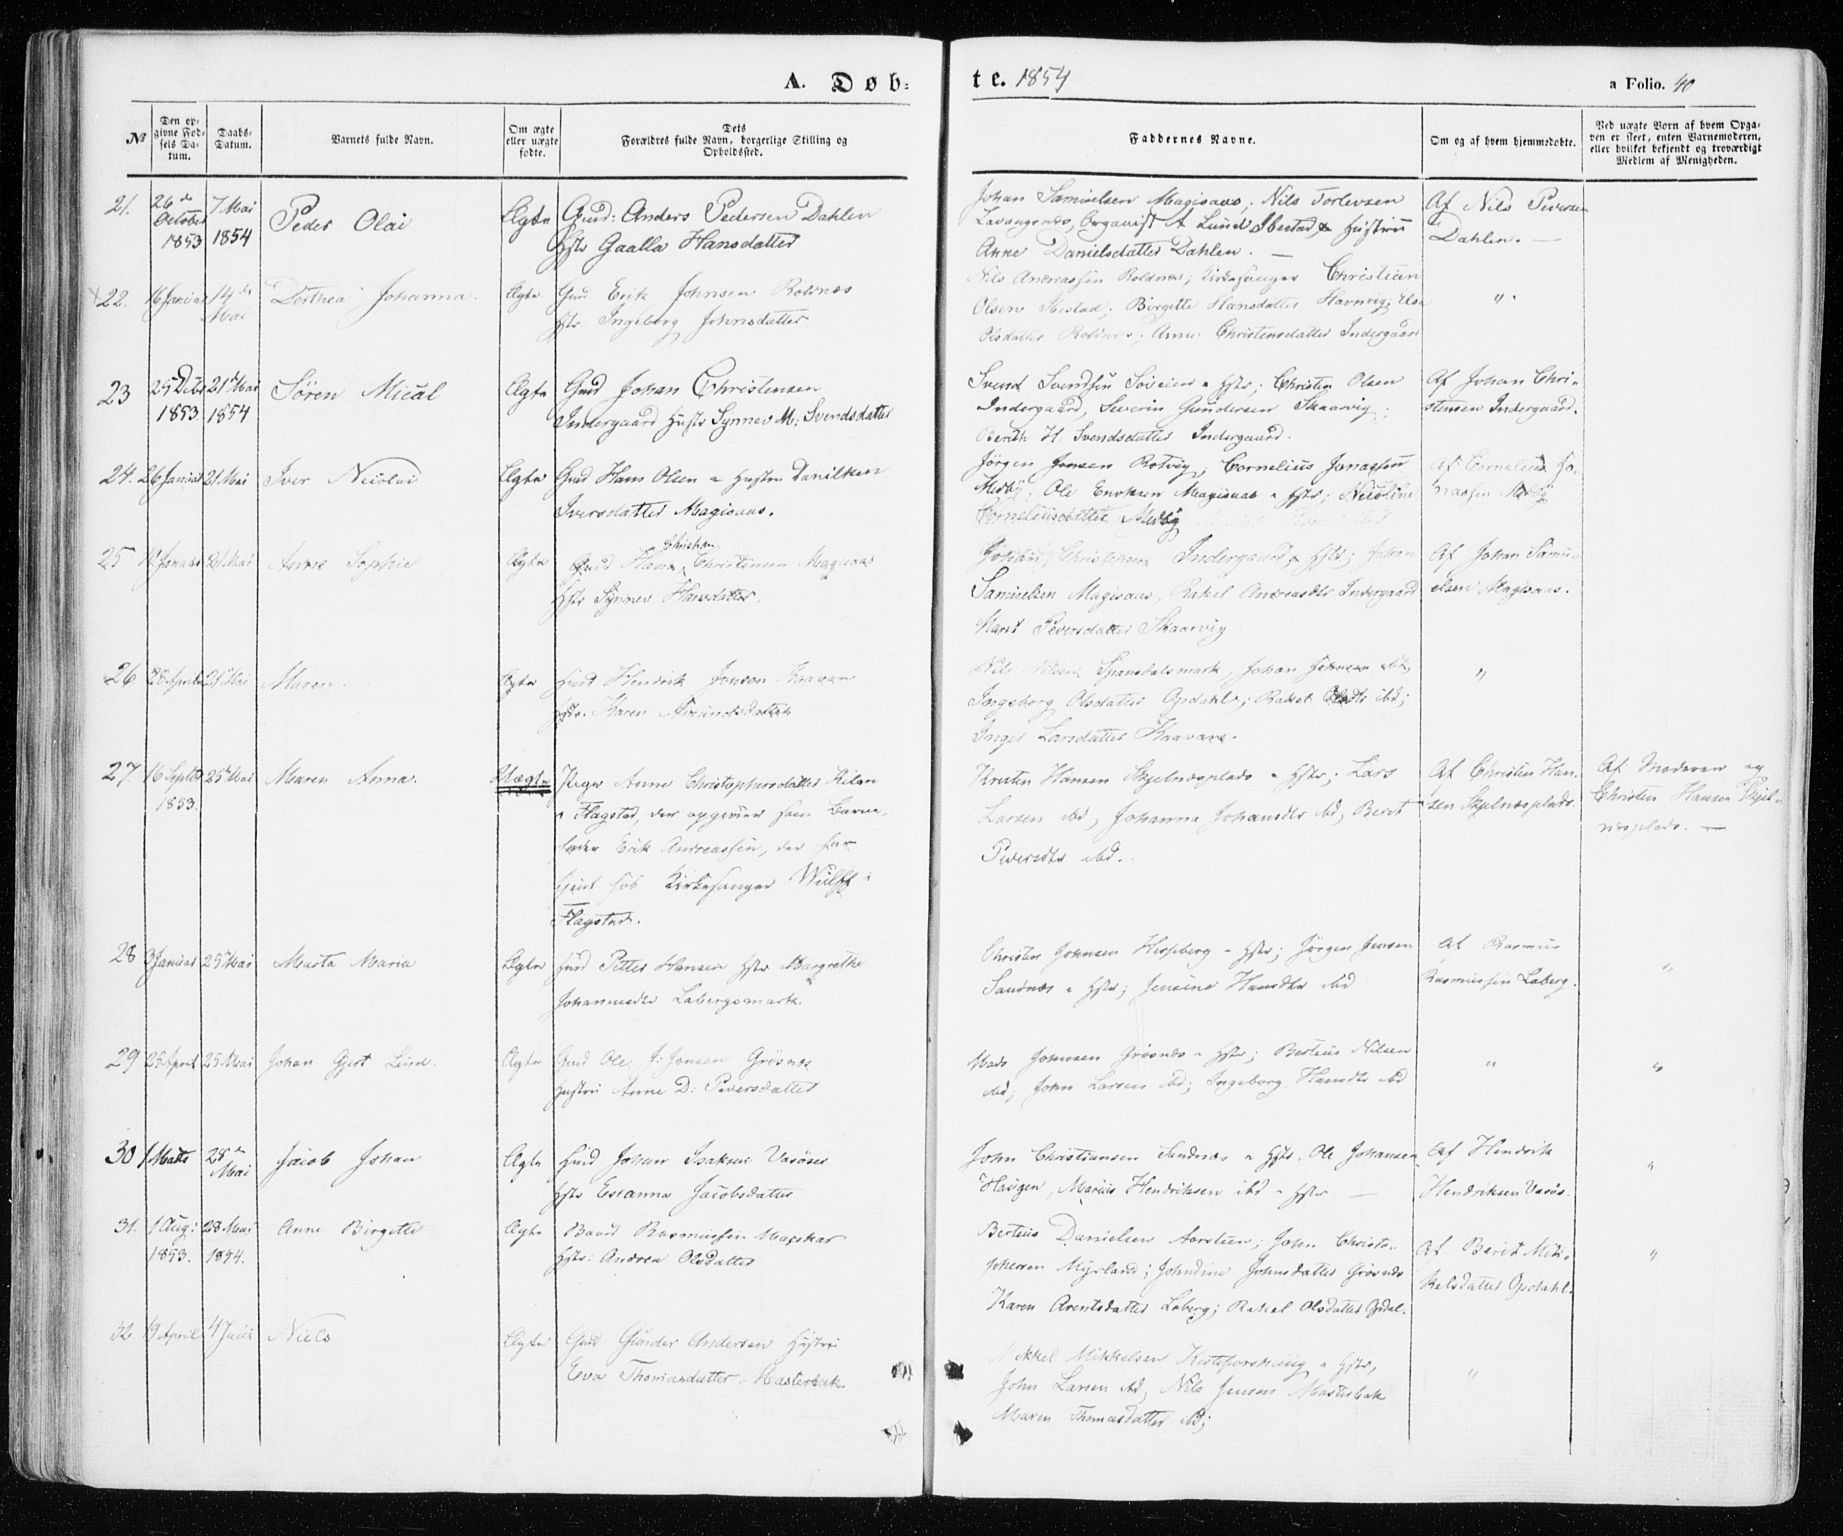 A. Døb-
te. 1854
a Folio. 40
No
Den op-
givne Fød-
sels Da-
tum.
Daabs-
Datum.
Barnets fulde Navn.
Om ægte
eller uægte
fødte.
Dets
Forældres fulde Navn, borgerlige Stilling og
Opholdssted.
Faddernes Navne.
Om og af hvem hjemmedøbte.
Ved uægte Børn af hvem Opga-
ven er skeet, enten Barnemoderen,
eller hvilket bekjendt og troværdigt
Medlem af Menigheden.
21. 26de October 1853 7 Mai 1854 Peder Olai Ægte
Gmd: Anders Pedersen Dahlen
Hstr Gaalla Hansdatter
Johan Samuelsen Magisaas; Nils Torlevsen
Lavangsnæs, Organist A Lund Ibestad & Hustrue
Anne Danielsdatter Dahlen. —
Af Nils Pedersen
Dahlen. —
22. 16 Januar 14de Mai Dorthea Johanna. Ægte
Gmd Erik Johnsen Rolnæs
Hstr Ingeborg Johnsdatter
Nils Andreassen Roldnæs; Kirkesanger Christian
Olsen Ibestad; Birgitte Hansdatter Havnvig; Else
Olsdatter Rolnæs; Anne Christensdatter Indergaard
"
23 25 Decbr 1853 21 Mai 1854 Sören Mical Ægte
Gmd Johan Christensen
Indergaard Hustr Synnev M: Svendsdatter
Svend Svendsen & Hstr; Christen Olsen
Indergaard, Severin Gundersen Skaarvig;
Berith H. Svendsdatter Indergaard.
Af Johan Chri-
stensen Indergaard.
24. 26 Januar 21 Mai Iver Nicolai Ægte
Gmd Hans Olsen & Hustru Danilken
Iversdatter Magisaas.
Jörgen Jensen Rotvig, Cornelius Jonassen
Medby; Ole Enoksen Magisaas & Hstr; Nicoline
Corneliusdatter Medby
Af Cornelius Jo-
nassen Medby
25 Januar 21 Mai Anne Sophie Ægte
Christian
Gmd Hans Christensen Magisaas
Hstr Synnev Hansdatter.
Johan Christensen Indergaard & Hstr; Johan
Samuelsen Magisaas, Rakel Andreasdtr Indergaard
Maret Pedersdatter Skaarvig.
Af Johan Samu-
elsen Magisaas.
26 28 April 25 Mai Maren. Ægte
Hmd Hendrik Jonsen Kaavan
Hstr: Karen Amundsdatter
Nils Nilsen Spansdalsmark, Johan Johnsen ibd,
Ingeborg Olsdatter Opdahl; Rakel Olsdtr ibd;
Inger Larsdatter Kaavan.
"
27 16 Septbr 1853. 25 Mai Maren Anna. Uægte
Pige Anne Christophersdatter Kilan
i Flagstad, der opgiver som Barne-
fader Erik Andreassen, der har
tjent hos Kirkesanger Wulff i
Flagstad.
Kristen Hansen Skjelnæsplads & Hstr; Lars
Larsen ibd, Johanna Johansdtr ibd, Beret
Pedersdtr ibd.
Af Christen Han-
sen Skjelnæsplads.
Af Moderen og
Christen Hansen Skjel-
næsplads. —
28 3 Januar 25 Mai Marta Maria Ægte
Hmd Petter Hansen Hstr Margrethe
Johannesdtr Labergsmark.
Christen Johnsen Hesseberg & Hstr; Jörgen Jensen
Sandnæs & Hstr; Jensine Hansdtr ibd
Af Rasmus
Rasmussen Laberg.
"
29 25 April 25 Mai Johan Gjert Lund. Ægte
Gmd Ole J: Jensen Grösnæs
Hustru Anne D: Pedersdatter
Mads Johnsen Grösnæs & Hstr; Berteus Nilsen
ibd; John Larsen ibd; Ingeborg Hansdtr ibd
"
"
30 1 Marts 28de Mai Jacob Johan Ægte
Hmd Johan Isaksen Vasöse
Hstr Esianna Jacobsdatter
John Christiansen Sandnæs & Hstr. Ole Johansen
Haugen, Marius Hendriksen ibd & Hstr —
Af Hendrik
Hendriksen Vasös.
"
31. 1 Aug: 1853. 28 Mai 1854. Anne Birgitte Ægte
Baard Rasmussen Maxskar
Hstr: Andrea Olsdatter
Berteus Danielsen Aarsteen; John Christo-
phersen Myrland; Johndine Johnsdatter Grösnæs
Karen Arentsdatter Laberg; Rakel Olsdatter Opdal.
Af Berit Mik-
kelsdatter Opdahl.
"
32 19 April 4 Juni Niels Ægte
Gmd Gunder Andersen Hustru
Eva Thomasdatter Masterbak
Mikkel Mikkelsen & Hstr,
John Larsen ibd, Nils Jensen Masterbak
Maren Thomasdatter ibd;
"